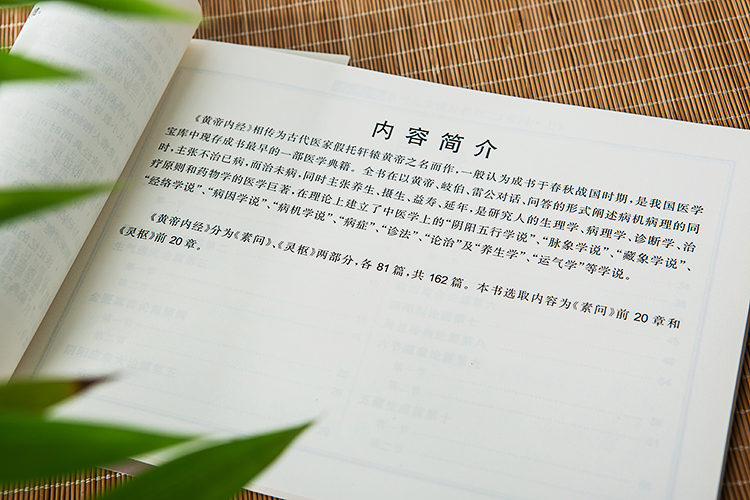 内容简介
《黄帝内经》相传为古代医家假托轩辕黄帝之名而作，一般认为成书于春秋战国时期，是我国医学
宝库中现存成书最早的一部医学典籍。全书在以黄帝、岐伯、雷公对话、问答的形式阐述病机病理的同
时，主张不治已病，而治未病，同时主张养生、摄生、益寿、延年，是研究人的生理学、病理学、诊断学、治
疗原则和药物学的医学巨著，在理论上建立了中医学上的“阴阳五行学说”、“脉象学说”、“藏象学说”、
“经络学说”、“病因学说”、“病机学说”、“病症”、“诊法”、“论治”及“养生学”、“运气学”等学说。
《黄帝内经》分为《素问》、《灵枢》两部分，各 81 篇，共 162 篇。本书选取内容为《素问》前 20 章和
《灵枢》前 20 章。